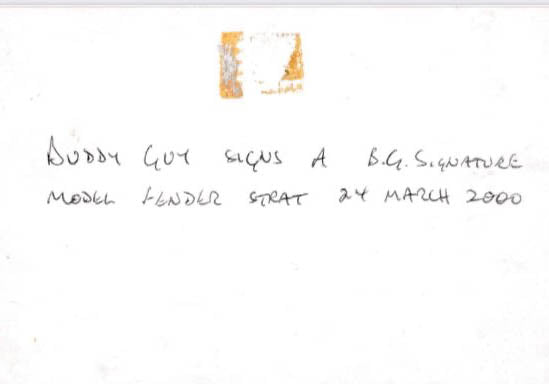 BUDDY GUY SIGNS A B.G. SIGNATURE
MODEL FENDER STRAT 24 MARCH 2000